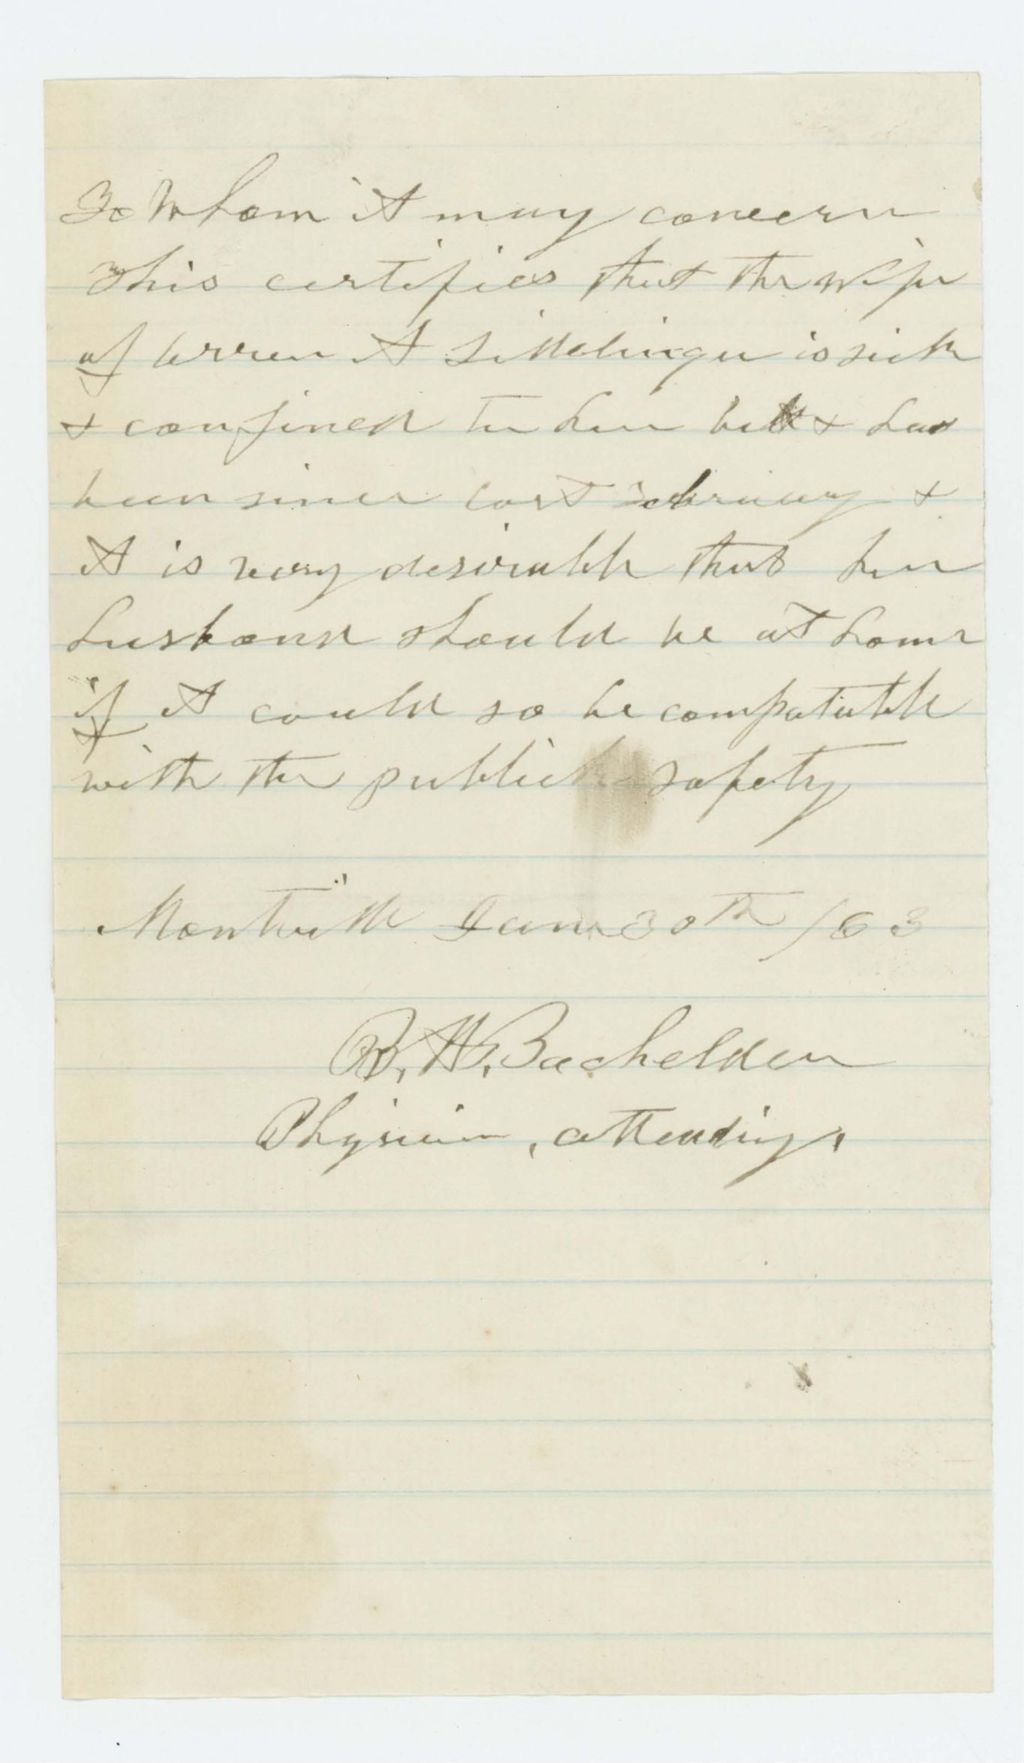 To Whom it may concern
This certifies that the wife
of Orren A Sidelinger is sick
& confined to her bed & has
been since last February &
it is very desirable that her
husband should be at home
if it could so be compatable
with the publick safety
Montville Jan 30th /63
B. W. Bachelder
Physician, attending.